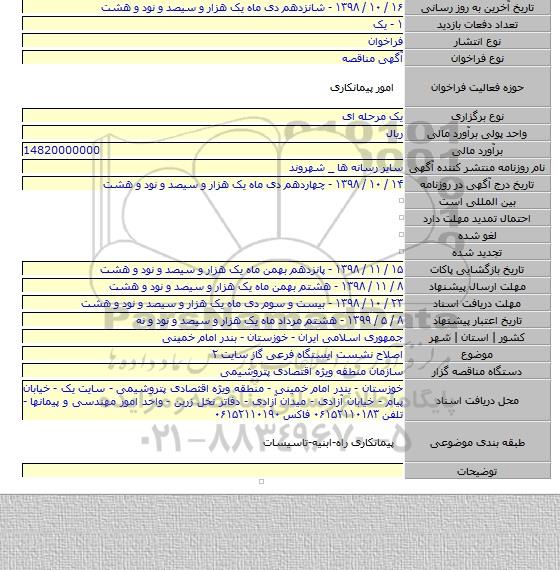 تاریخ آخرین به روز رسانی ۱۶ / ۱۰ / ۱۳۹۸ - شانزدهم دی ماه یک هزار و سیصد و نود و هشت
تعداد دفعات بازدید ۱ - یک
نوع انتشار فراخوان
نوع فراخوان آگهی مناقصه
حوزه فعالیت فراخوان امور پیمانکاری
نوع برگزاری یک مرحله ای
واحد پولی برآورد مالی ریال
برآورد مالی 14820000000
نام روزنامه منتشر کننده آگهی سایر رسانه ها _ شهروند
تاریخ درج آگهی در روزنامه ۱۴ / ۱۰ / ۱۳۹۸ - چهاردهم دی ماه یک هزار و سیصد و نود و هشت
بین المللی است
احتمال تمدید مهلت دارد
لغو شده
تجدید شده
تاریخ بازگشایی پاکات ۱۵ / ۱۱ / ۱۳۹۸ - پانزدهم بهمن ماه یک هزار و سیصد و نود و هشت
مهلت ارسال پیشنهاد ۸ / ۱۱ / ۱۳۹۸ - هشتم بهمن ماه یک هزار و سیصد و نود و هشت
مهلت دریافت اسناد ۲۳ / ۱۰ / ۱۳۹۸ - بیست و سوم دی ماه یک هزار و سیصد و نود و هشت
تاریخ اعتبار پیشنهاد ۸ / ۵ / ۱۳۹۹ - هشتم مرداد ماه یک هزار و سیصد و نود و نه
کشور | استان | شهر جمهوری اسلامی ایران - خوزستان - بندر امام خمینی
موضوع اصلاح نشست ایستگاه فرعی گاز سایت ۲
دستگاه مناقصه گزار سازمان منطقه ویژه اقتصادی پتروشیمی
محل دریافت اسناد خوزستان - بندر امام خمینی - منطقه ویژه اقتصادی پتروشیمی - سایت یک - خیابان
پیام - خیابان آزادی - میدان آزادی - دفاتر نخل زرین - واحد امور مهندسی و پیمانها -
تلفن ۰۶۱۵۲۱۱۰۱۸۳ فاکس ۰۶۱۵۲۱۱۰۱۹۰
طبقه بندی موضوعی پیمانکاری راه-ابنیه-تاسیسات
توضیحات
۰۲۱-۸۸۳۴۹۶۷۰-۵